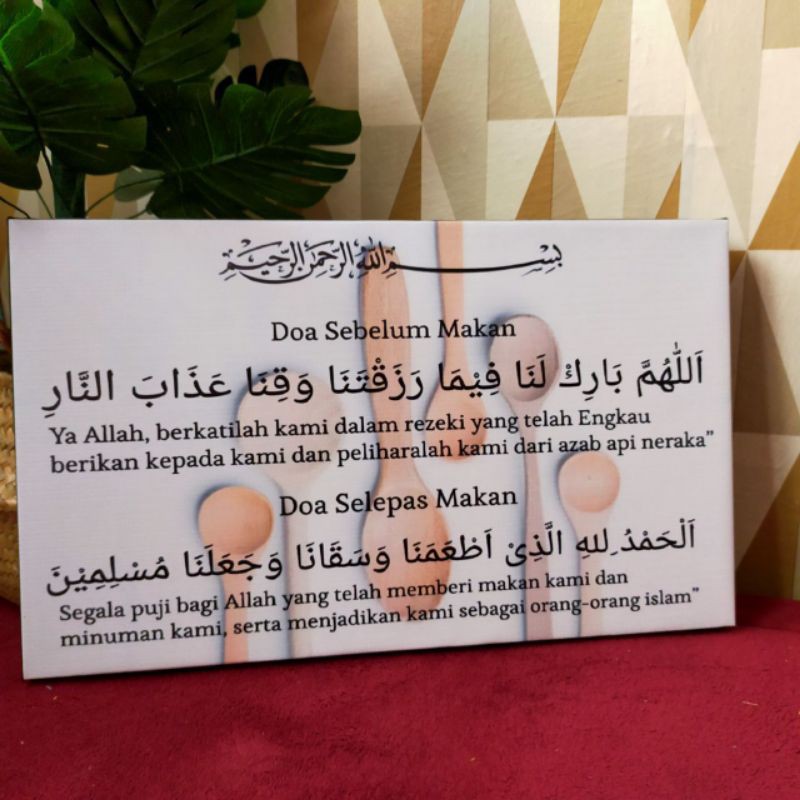 بِسْمِ اللهِ الرَّحْمٰنِ الرَّحِيْمِ
Doa Sebelum Makan
اَللّٰهُمَّ بَارِكْ لَنَا فِيْمَا رَزَقْتَنَا وَقِنَا عَذَابَ النَّارِ
Ya Allah, berkatilah kami dalam rezeki yang telah Engkau
berikan kepada kami dan peliharalah kami dari azab api neraka"
Doa Selepas Makan
اَلْحَمْدُ ِللهِ الَّذِىْ اَطْعَمَنَا وَسَقَانَا وَجَعَلَنَا مُسْلِمِيْنَ
Segala puji bagi Allah yang telah memberi makan kami dan
minuman kami, serta menjadikan kami sebagai orang-orang islam"